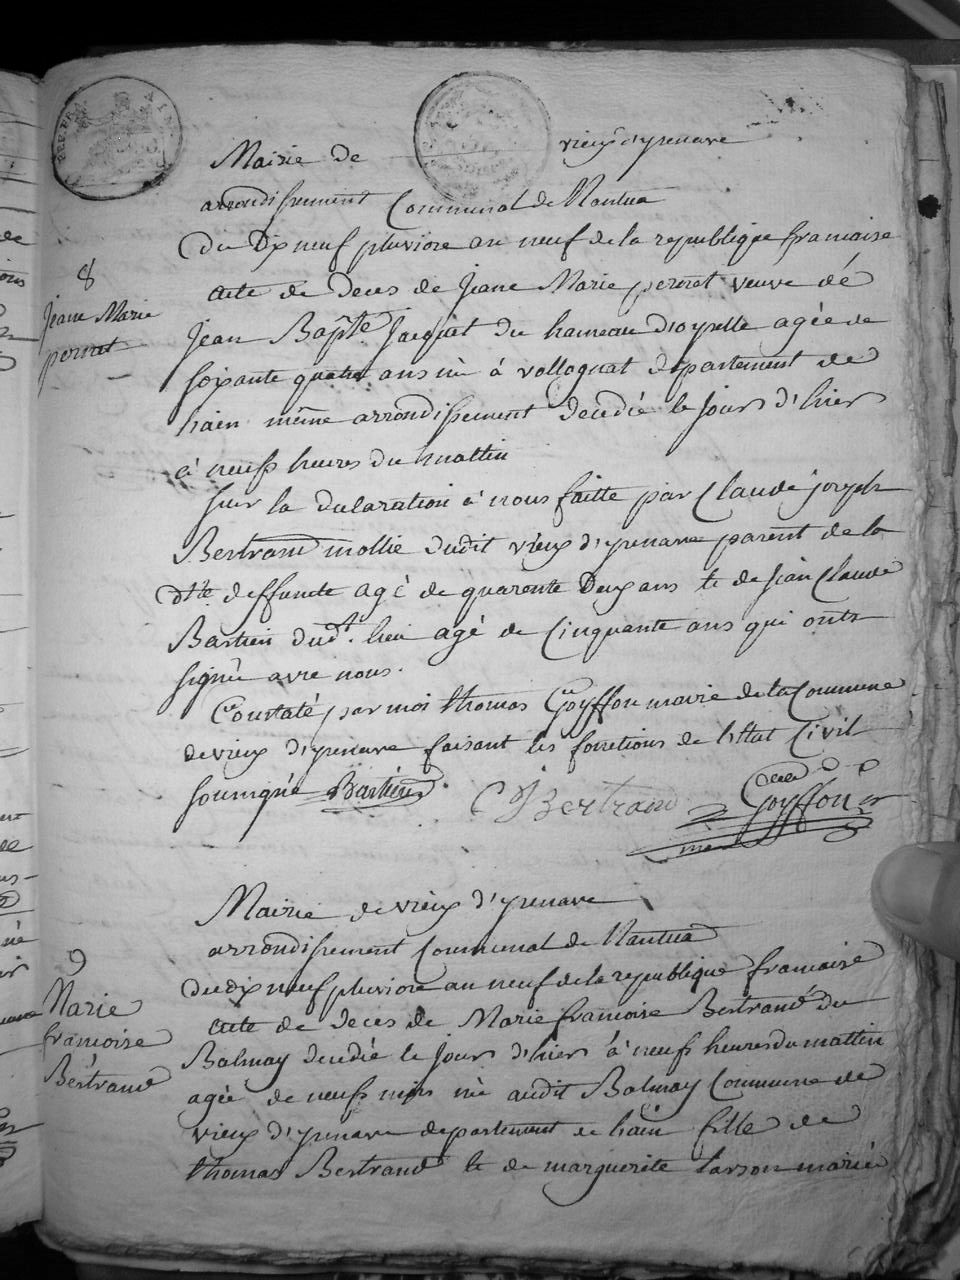 Mairie de vieux d'yzenave
arrondissement Communal de Nantua
Du Dix neuf pluviose an neuf de la republique francaise
8
Jeane Marie
pernet
acte de Deces de Jeane Marie pernet veuve de
Jean Bapte. Jacquet du hameau d'oyselle agée de
soixante quatre ans née à vollognat departement de
hain même arrondissement decedée le jours d'hier
à neufs heures du mattin
sur la declaration à nous faitte par Claude joseph
Bertrand mollie dudit vieux d'yzenave parent de la
dtte. deffuncte agé de quarente Deux ans et de jean Claude
Bastien dudt. lieu agé de Cinquante ans qui onts
signé avec nous.
Constaté par moi thomas Goyffon maire de la Commune
de vieux d'yzenave faisant les fonctions de l'Etat Civil
soussigné Bastien CJBertrand Goyffon
Mairie de vieux d'yzenave
arrondissement Communal de Nantua
du dix neuf pluviose an neuf de la republique francaise
9
Marie
francoise
Bertrand
acte de deces de Marie francoise Bertrand du
Balmay decedée le jours d'hier à neufs heures du mattin
agée de neufs mois née audit Balmay Commune de
vieux d'yzenave departement de hain fille de
thomas Bertrand et de marguerite larson mariés